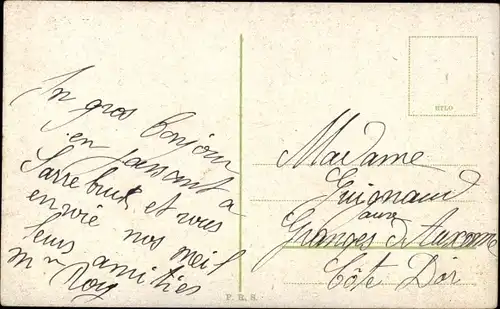 Un gros bonjour
en passant à
Sarrebruk et vous
envoie nos meil
leurs amitiés
Mm Roy
HTLO
Madame
Guignaud
aux
Granges d'Auxonne
Côte D'or
P. R. S.